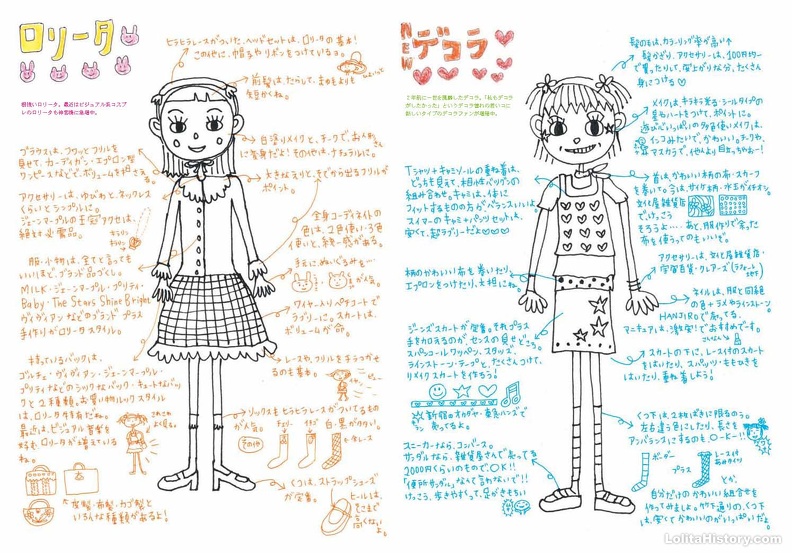 ロリータ
根強いロリータ。最近はビジュアル系コスプ
レのロリータも神宮橋に急増中。
ヒラヒラレースがついた、ヘッドセットは、ロリータの基本!
この他に、帽子やリボンをつけているヨ。
前髪は、たらして、まゆもより
も短かくね。
白塗りメイクと、チークで、お人形さん
に変身だよ!その他は、ナチュラルに。
大きなえりと、そでから出るフリルが
ポイント。
ブラウスには、フワッとフリルを
見せて、カーディガン・エプロン型
ワンピースなどで、ボリュームを押さえ
る。
アクセサリーは、ゆびわと、ネックレス
くらいとシンプルに。
ジェーンマープルの王冠アクセは、
絶対必需品。
全身コーディネイトの
色は、2色使い・3色
使いと、統一感がある。
手元にぬいぐるみを…
が人気。
服・小物は、全てと言っても
いいほど、ブランド品づくし。
MILK・ジェーンマープル・プリティ・
Baby, The Stars Shine Bright
ヴィヴィアンなどのブランド プラス
手作りがロリータスタイル。
ワイヤー入りペチコートで
ラブリーに。スカートは、
ボリュームが命。
レースや、フリルをチラつかせ
るのも基本。
持っているバックは、
ゴルチェ・ヴィヴィアン・ジェーンマープル・
プリティなどのシックなバック・キュートなバッ
クと、2種類。お買い物ルックスタイル
は、ロリータ特有だね。
最近は、ビジュアル音楽を
好む、ロリータが増えている
ね。
ソックスもヒラヒラレースがついてるもの
が人気。
その他
チェリー
イチゴ
白・黒がダカい。
レース
皮製・布製・カゴ製と
いろんな種類があるよ!
くつは、ストラップシューズ
が定番。
ヒールは、
そこまで
高くない
よ。
NEW デコラ
2年前に一世を風靡したデコラ。「私もデコラ
がしたかった」というデコラ憧れの若いコに
新しいタイプのデコラファンが増殖中。
髪の毛は、カラーリング率が高い↑
髪かざり、アクセサリーは、100円均一
で買ったりして、値上がりながら、たくさん
身につける♡
メイクは、キラキラ光る シールタイプの
星もハートをつけて、ポイントに。
遊び心いっぱいの多色使いメイクは、
インコみたいで、かわいい。チークや、
マスカラで、他人より目立っちゃお〜!
首は、かわいい柄の布・スカーフ
を巻いて。今は、サイケ柄・水玉がイチオシ。
文化屋雑貨店
でけっこう
そろうよ…。あと、服作りで余った
布を使ってのもいいぞ。
Tシャツ+キャミソールの重ね着は、
どっちも見えて、相性バツグンの
組み合わせ。キャミは、体に
フィットするものの方がバランスいいよ。
スイマーのキャミ+パンツセットは、
安くて、超ラブリーだよ♡♡♡
アクセサリーは、文化屋雑貨店・
宇宙百貨・クレアーズ(ラフォーレ
B1F)
柄のかわいい布を巻いたり、
エプロンをつけたり、大胆にね。
ネイルは、服と同級
の色+ラメやラインストーン。
HANJIROで売ってる、
マニキュアは、激安!でおすすめです。
ジーンズスカートが定番。それプラス
手を加えるのが、センスの見せどころ。
スパンコール、ワッペン、スタッズ、
ラインストーン・テープと、たくさんつけて、
リメイクスカートを作ろう!
新宿のオカダヤ・東急ハンズで
売ってるよ。
スカートの下に、レース付のスカート
をはいたり、スパッツ・ももひきを
はいたり、重ね着しよう!
スニーカーなら、コンバース。
サンダルなら、雑貨屋さんで売ってる
2000円くらいのもので、OK!!
「便所サンダル」なんて言わないで!!
けっこう、歩きやすくって、足がきもちい
くつ下は、2枚ばきに限るのう。
左右違う色にしたり、長さを
アンバランスにするのもO〜K〜!!
ボーダー
プラス
レース付
とか、
自分だけのかわいい組合せを
作ってみましょ。竹下通りの、くつ下
は、安くてかわいいのがいっぱいだよ。
LolitaHistory.com